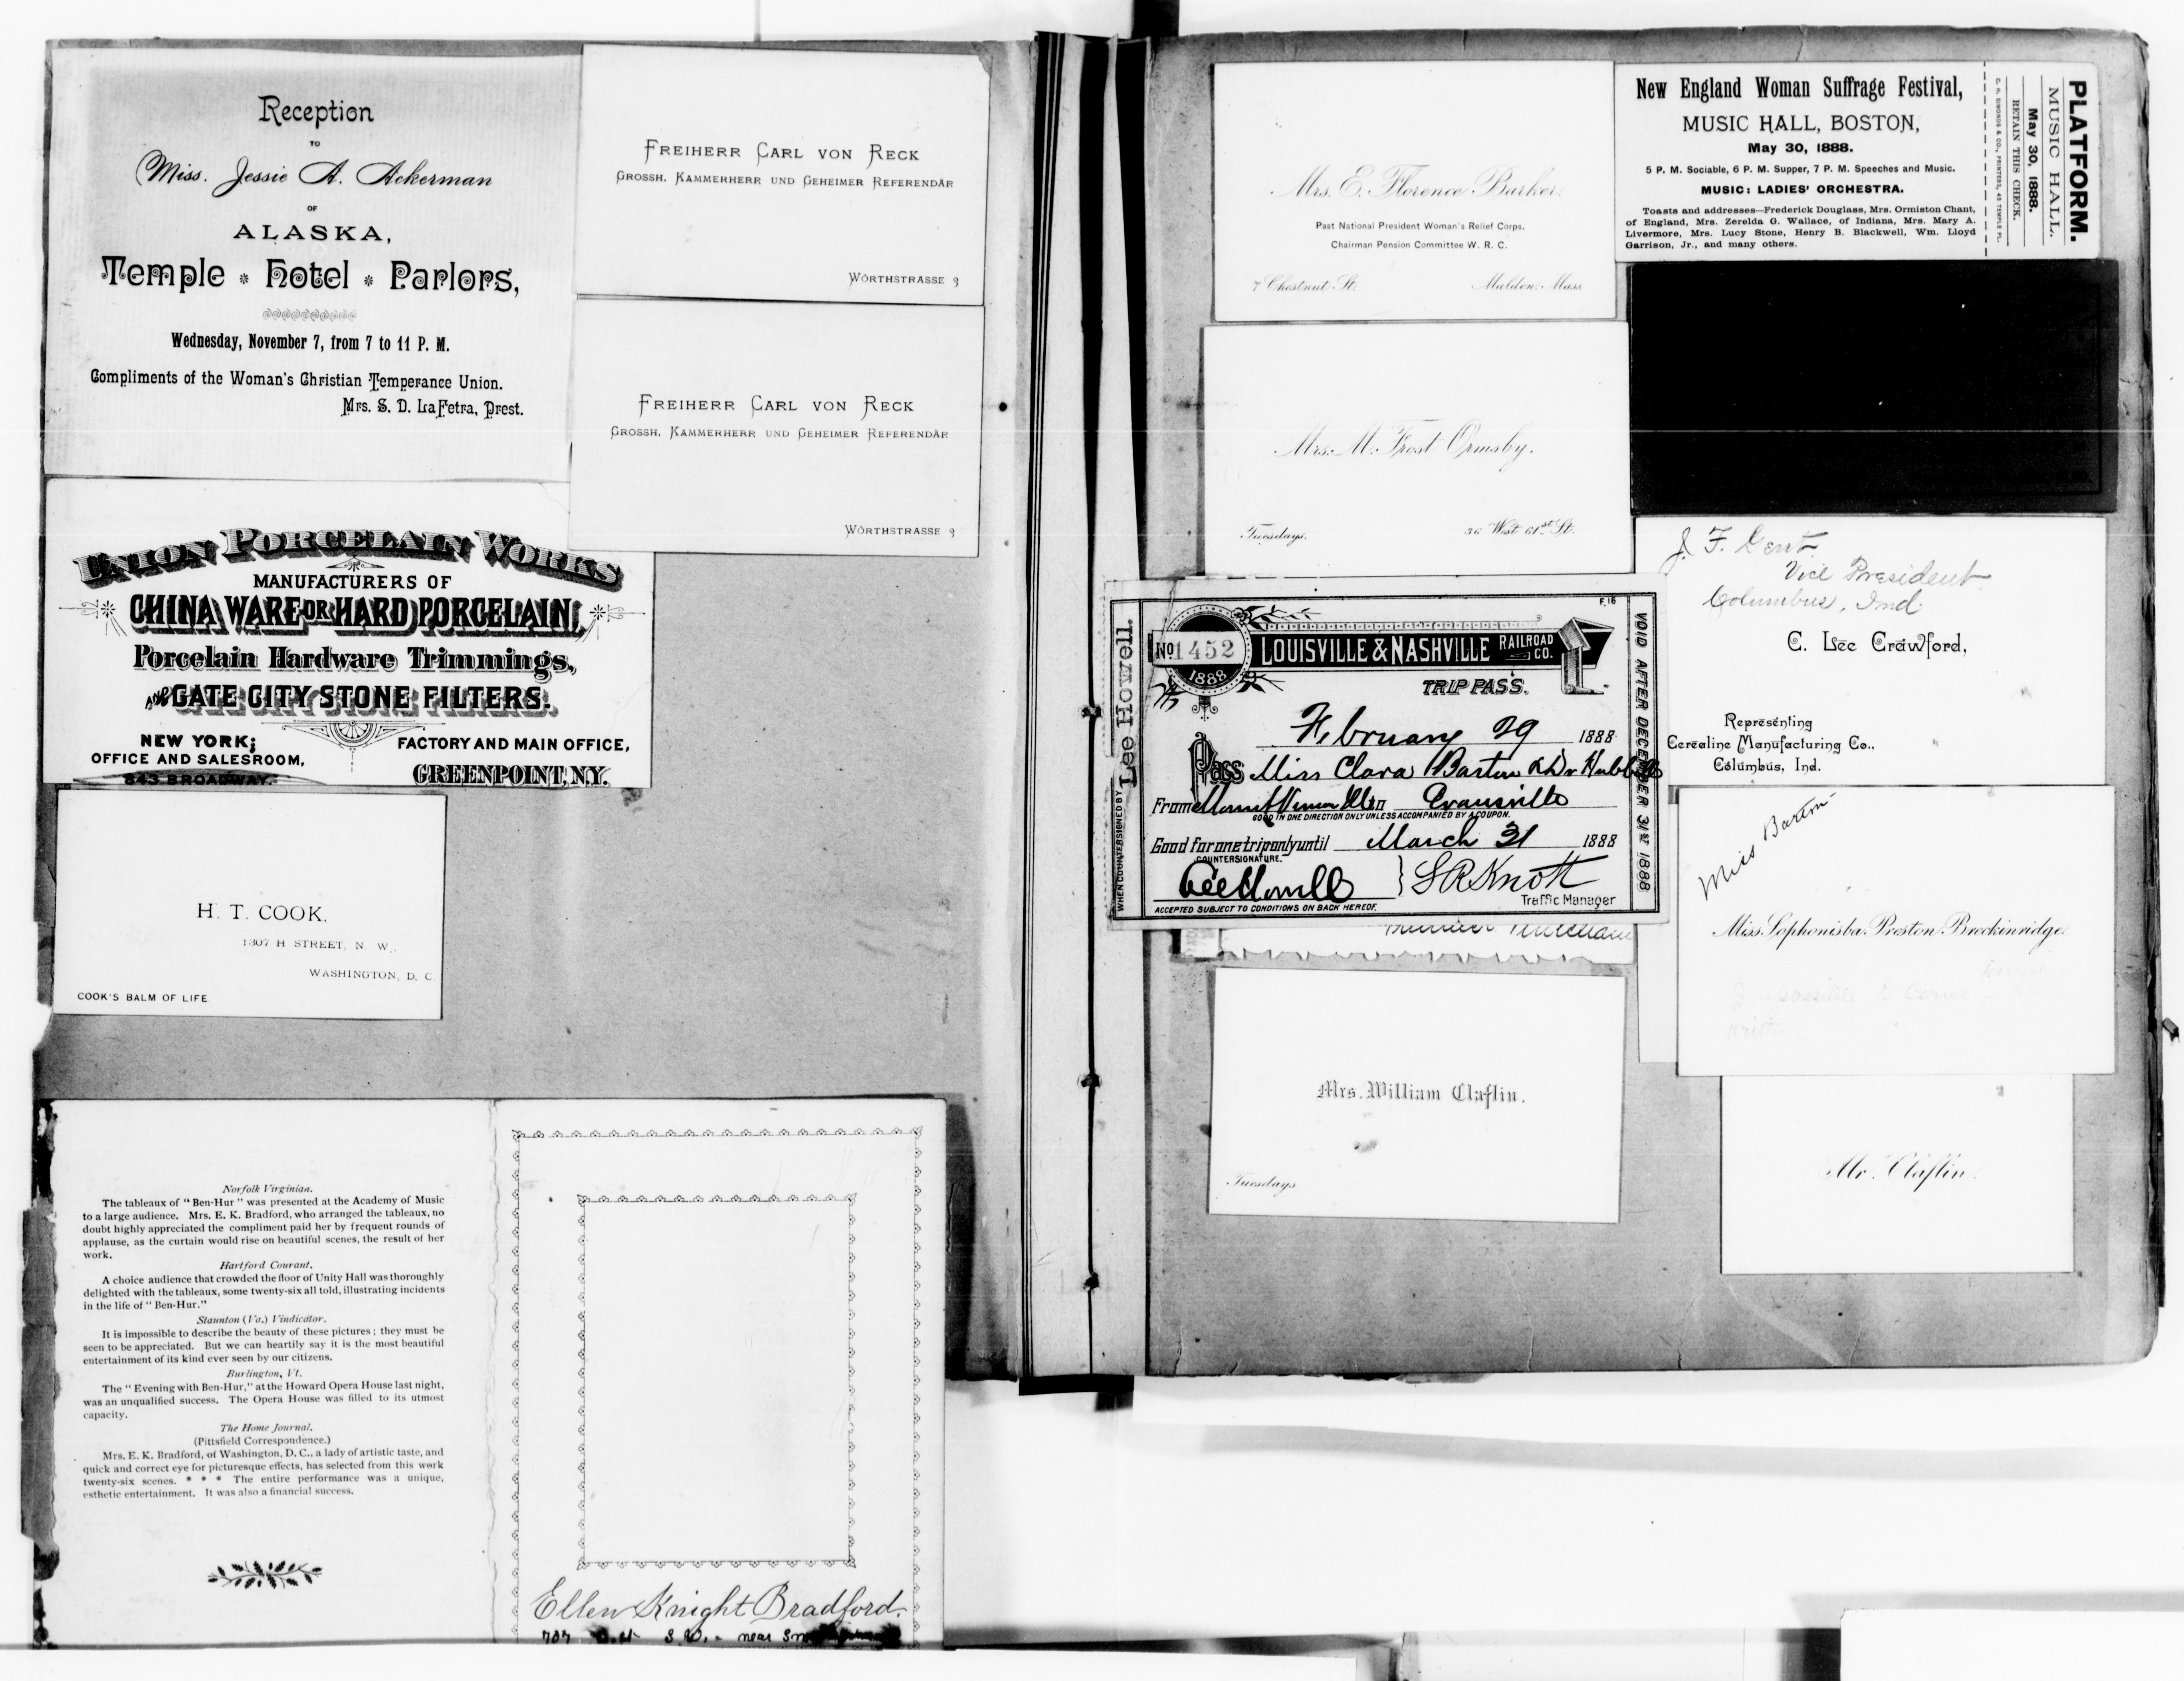 Reception
TO
Miss. Jessie A. Ackerman
OF
ALASKA,
Temple * Hotel * Parlors,
Wednesday, November 7, from 7 to 11 P. M.
Compliments of the Woman's Christian Temperance Union.
Mrs. S. D. LaFetra, Prest.
FREIHERR CARL VON RECK
GROSSH. KAMMERHERR UND GEHEIMER REFERENDÄR
WÖRTHSTRASSE 9
FREIHERR CARL VON RECK
GROSSH. KAMMERHERR UND GEHEIMER REFERENDÄR
WÖRTHSTRASSE 9
UNION PORCELAIN WORKS
MANUFACTURERS OF
CHINA WARE OR HARD PORCELAIN,
Porcelain Hardware Trimmings,
AND GATE CITY STONE FILTERS.
NEW YORK;
OFFICE AND SALESROOM,
843 BROADWAY.
FACTORY AND MAIN OFFICE,
GREENPOINT, N.Y.
H. T. COOK.
1307 H STREET, N. W.,
WASHINGTON, D. C.
COOK'S BALM OF LIFE
Norfolk Virginian.
The tableaux of "Ben-Hur" was presented at the Academy of Music
to a large audience. Mrs. E. K. Bradford, who arranged the tableaux, no
doubt highly appreciated the compliment paid her by frequent rounds of
applause, as the curtain would rise on beautiful scenes, the result of her
work.
Hartford Courant.
A choice audience that crowded the floor of Unity Hall was thoroughly
delighted with the tableaux, some twenty-six all told, illustrating incidents
in the life of "Ben-Hur."
Staunton (Va.) Vindicator.
It is impossible to describe the beauty of these pictures; they must be
seen to be appreciated. But we can heartily say it is the most beautiful
entertainment of its kind ever seen by our citizens.
Burlington, Vt.
The "Evening with Ben-Hur," at the Howard Opera House last night,
was an unqualified success. The Opera House was filled to its utmost
capacity.
The Home Journal.
(Pittsfield Correspondence.)
Mrs. E. K. Bradford, of Washington, D. C., a lady of artistic taste, and
quick and correct eye for picturesque effects, has selected from this work
twenty-six scenes. * * * The entire performance was a unique,
esthetic entertainment. It was also a financial success.
Ellen Knight Bradford.
707 S.W. - near
Mrs. E. Florence Barker.
Past National President Woman's Relief Corps.
Chairman Pension Committee W. R. C.
7 Chestnut St. Malden, Mass.
New England Woman Suffrage Festival,
MUSIC HALL, BOSTON,
May 30, 1888.
5 P. M. Sociable, 6 P. M. Supper, 7 P. M. Speeches and Music.
MUSIC: LADIES' ORCHESTRA.
Toasts and addresses—Frederick Douglass, Mrs. Ormiston Chant,
of England, Mrs. Zerelda G. Wallace, of Indiana, Mrs. Mary A.
Livermore, Mrs. Lucy Stone, Henry B. Blackwell, Wm. Lloyd
Garrison, Jr., and many others.
PLATFORM.
MUSIC HALL.
May 30, 1888.
RETAIN THIS CHECK.
C. H. SIMONDS & CO., PRINTERS, 45 TEMPLE PL.
Mrs. M. Frost Ormsby.
Tuesdays. 36 West 61st St.
Lee Howell.
WHEN COUNTERSIGNED BY
F. 16
No 1452
1888
LOUISVILLE & NASHVILLE RAILROAD CO.
TRIP PASS.
February 29 1888
Pass Miss Clara Barton & Dr Hubbell
From Mount Vernon Ills to Evansville
GOOD IN ONE DIRECTION ONLY UNLESS ACCOMPANIED BY A COUPON.
Good for one trip only until March 31 1888
COUNTERSIGNATURE.
Lee Howell } S R Knott
Traffic Manager
ACCEPTED SUBJECT TO CONDITIONS ON BACK HEREOF.
VOID AFTER DECEMBER 31st 1888
J. F. Gent
Vice President
Columbus, Ind
C. Lee Crawford,
Representing
Cerealine Manufacturing Co.,
Columbus, Ind.
Miss Barton
Miss Sophonisba Preston Breckinridge.
Mrs. William Claflin.
Tuesdays
Mr. Claflin.